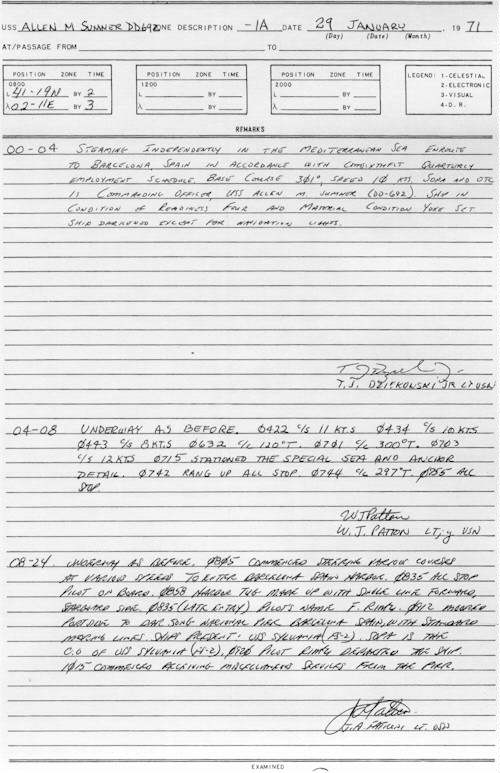 USS ALLEN M SUMNER DD692 ZONE DESCRIPTION -1A DATE 29 JANUARY, 1971
(Day) (Date) (Month)
AT/PASSAGE FROM TO
POSITION ZONE TIME
0800
L 41-19N BY 2
λ 02-11E BY 3
POSITION ZONE TIME
1200
L BY
λ BY
POSITION ZONE TIME
2000
L BY
λ BY
LEGEND: 1-CELESTIAL
2-ELECTRONIC
3-VISUAL
4-D.R.
REMARKS
00-04 STEAMING INDEPENDENTLY IN THE MEDITERRANEAN SEA ENROUTE
TO BARCELONA, SPAIN IN ACCORDANCE WITH COMSIXTHFLT QUARTERLY
EMPLOYMENT SCHEDULE. BASE COURSE 3Ø1°, SPEED 1Ø KTS. SOPA AND OTC
IS COMMANDING OFFICER, USS ALLEN M. SUMNER (DD-692). SHIP IN
CONDITION OF READINESS FOUR AND MATERIAL CONDITION YOKE SET
SHIP DARKENED EXCEPT FOR NAVIGATION LIGHTS.
T. J. DZIEKONSKI JR LT USN
04-08 UNDERWAY AS BEFORE. Ø422 C/S 11 KTS Ø434 C/S 10 KTS
Ø443 C/S 8 KTS Ø632 C/C 120°T. Ø7Ø1 C/C 300°T. Ø7Ø3
C/S 12 KTS Ø715 STATIONED THE SPECIAL SEA AND ANCHOR
DETAIL. Ø742 RANG UP ALL STOP. Ø744 C/C 297°T. Ø755 ALL
STOP.
WJPatton
W. J. PATTON LTJG USN
08-24. UNDERWAY AS BEFORE. Ø8Ø5 COMMENCED STEERING VARIOUS COURSES
AT VARIOUS SPEEDS TO ENTER BARCELONA SPAIN HARBOR. Ø835 ALL STOP
PILOT ON BOARD. Ø858 HARBOR TUG MADE UP WITH SINGLE LINE FORWARD,
STARBOARD SIDE. Ø835 (LATE ENTRY) PILOT'S NAME F. Ø912 MOORED
PORTSIDE TO PIER BARCELONA SPAIN, WITH STANDARD
MOORING LINES. SHIPS PRESENT: USS SYLVANIA (AFS-2). SOPA IS THE
C.O OF USS SYLVANIA (AFS-2). PILOT DEPARTED THE SHIP.
1Ø15 COMMENCED RECEIVING MISCELLANEOUS SERVICES FROM THE PIER.
J.A. LT. USN
EXAMINED